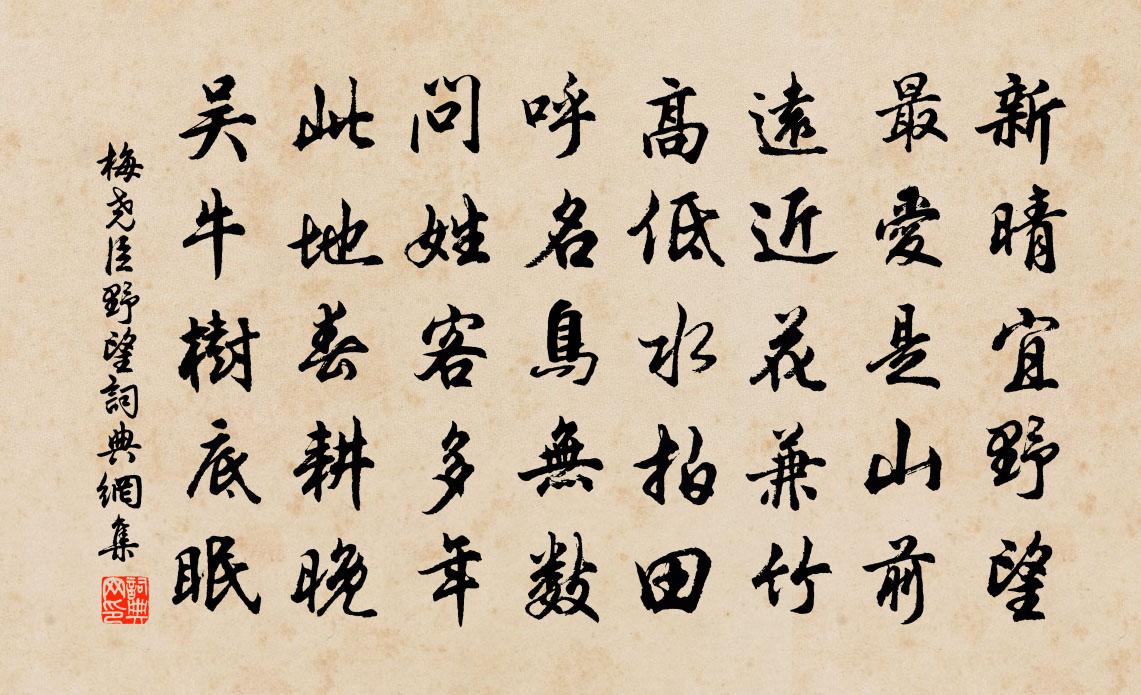 新晴宜野望
最愛是山前
遠近花兼竹
高低水拍田
呼名鳥無數
問姓客多年
此地春耕晚
吴牛樹底眠
梅堯臣野望詞典網集
詞典
网印